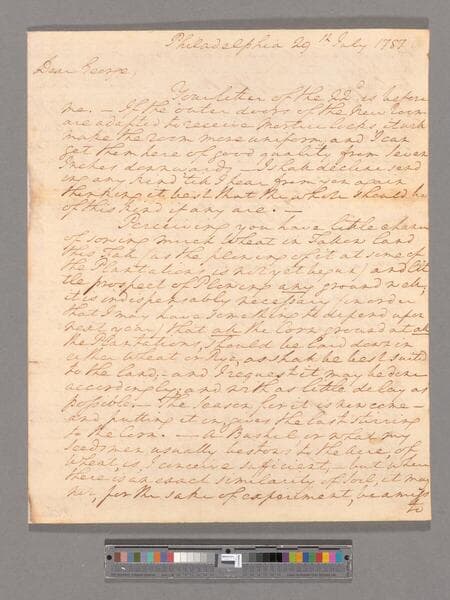 Philadelphia 29th July 1787
Dear George,
Your letter of the 22d is before
me. — If the outer doors of the New Room
are adapted to receive mortice locks it will
make the room more uniform, and I can
get them here of good quality from seven
Inches downward, — I shall decline send
ing any kind 'till I hear from you again
thinking it best that the whole should be
of this kind if any are. —
Perceiving you have little chance
of sowing much Wheat in Fallow land
this Fall (as the plowing of it at some of
the Plantations is not yet begun) and lit
tle prospect of Plowing any ground well,
it is indispensably necessary (in order
that I may have something to depend upon
next year) that all the Corn ground at all
the Plantations, should be laid down in
either wheat or Rye, as shall be best suited
to the land, – and I request it may be done
accordingly; and with as little delay as
possible. — The season for it is now come –
and putting it in gives the last stirring
to the Corn. — A Bushel or what my
Seedsmen usually bestow to the Acre, of
wheat, is, I conceive sufficient, – but where
there is an exact similarity of soil, it may
not, for the sake of experiment, be amiss
to